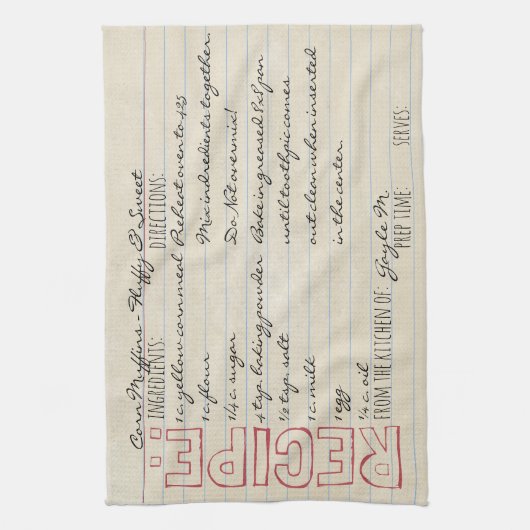 RECIPE:
Corn Muffins - Fluffy & Sweet
INGREDIENTS: DIRECTIONS:
1 c. yellow corn meal Preheat oven to 425
1 c flour Mix indredients together.
1/4 c. sugar Do Not overmix!
4 tsp. baking powder Bake in greased 8x8 pan
1/2 tsp. salt until toothpic comes
1 c. milk out clean when inserted
1 egg in the center.
1/4 c. oil
FROM THE KITCHEN OF: Gayle M.
PREP TIME: SERVES: